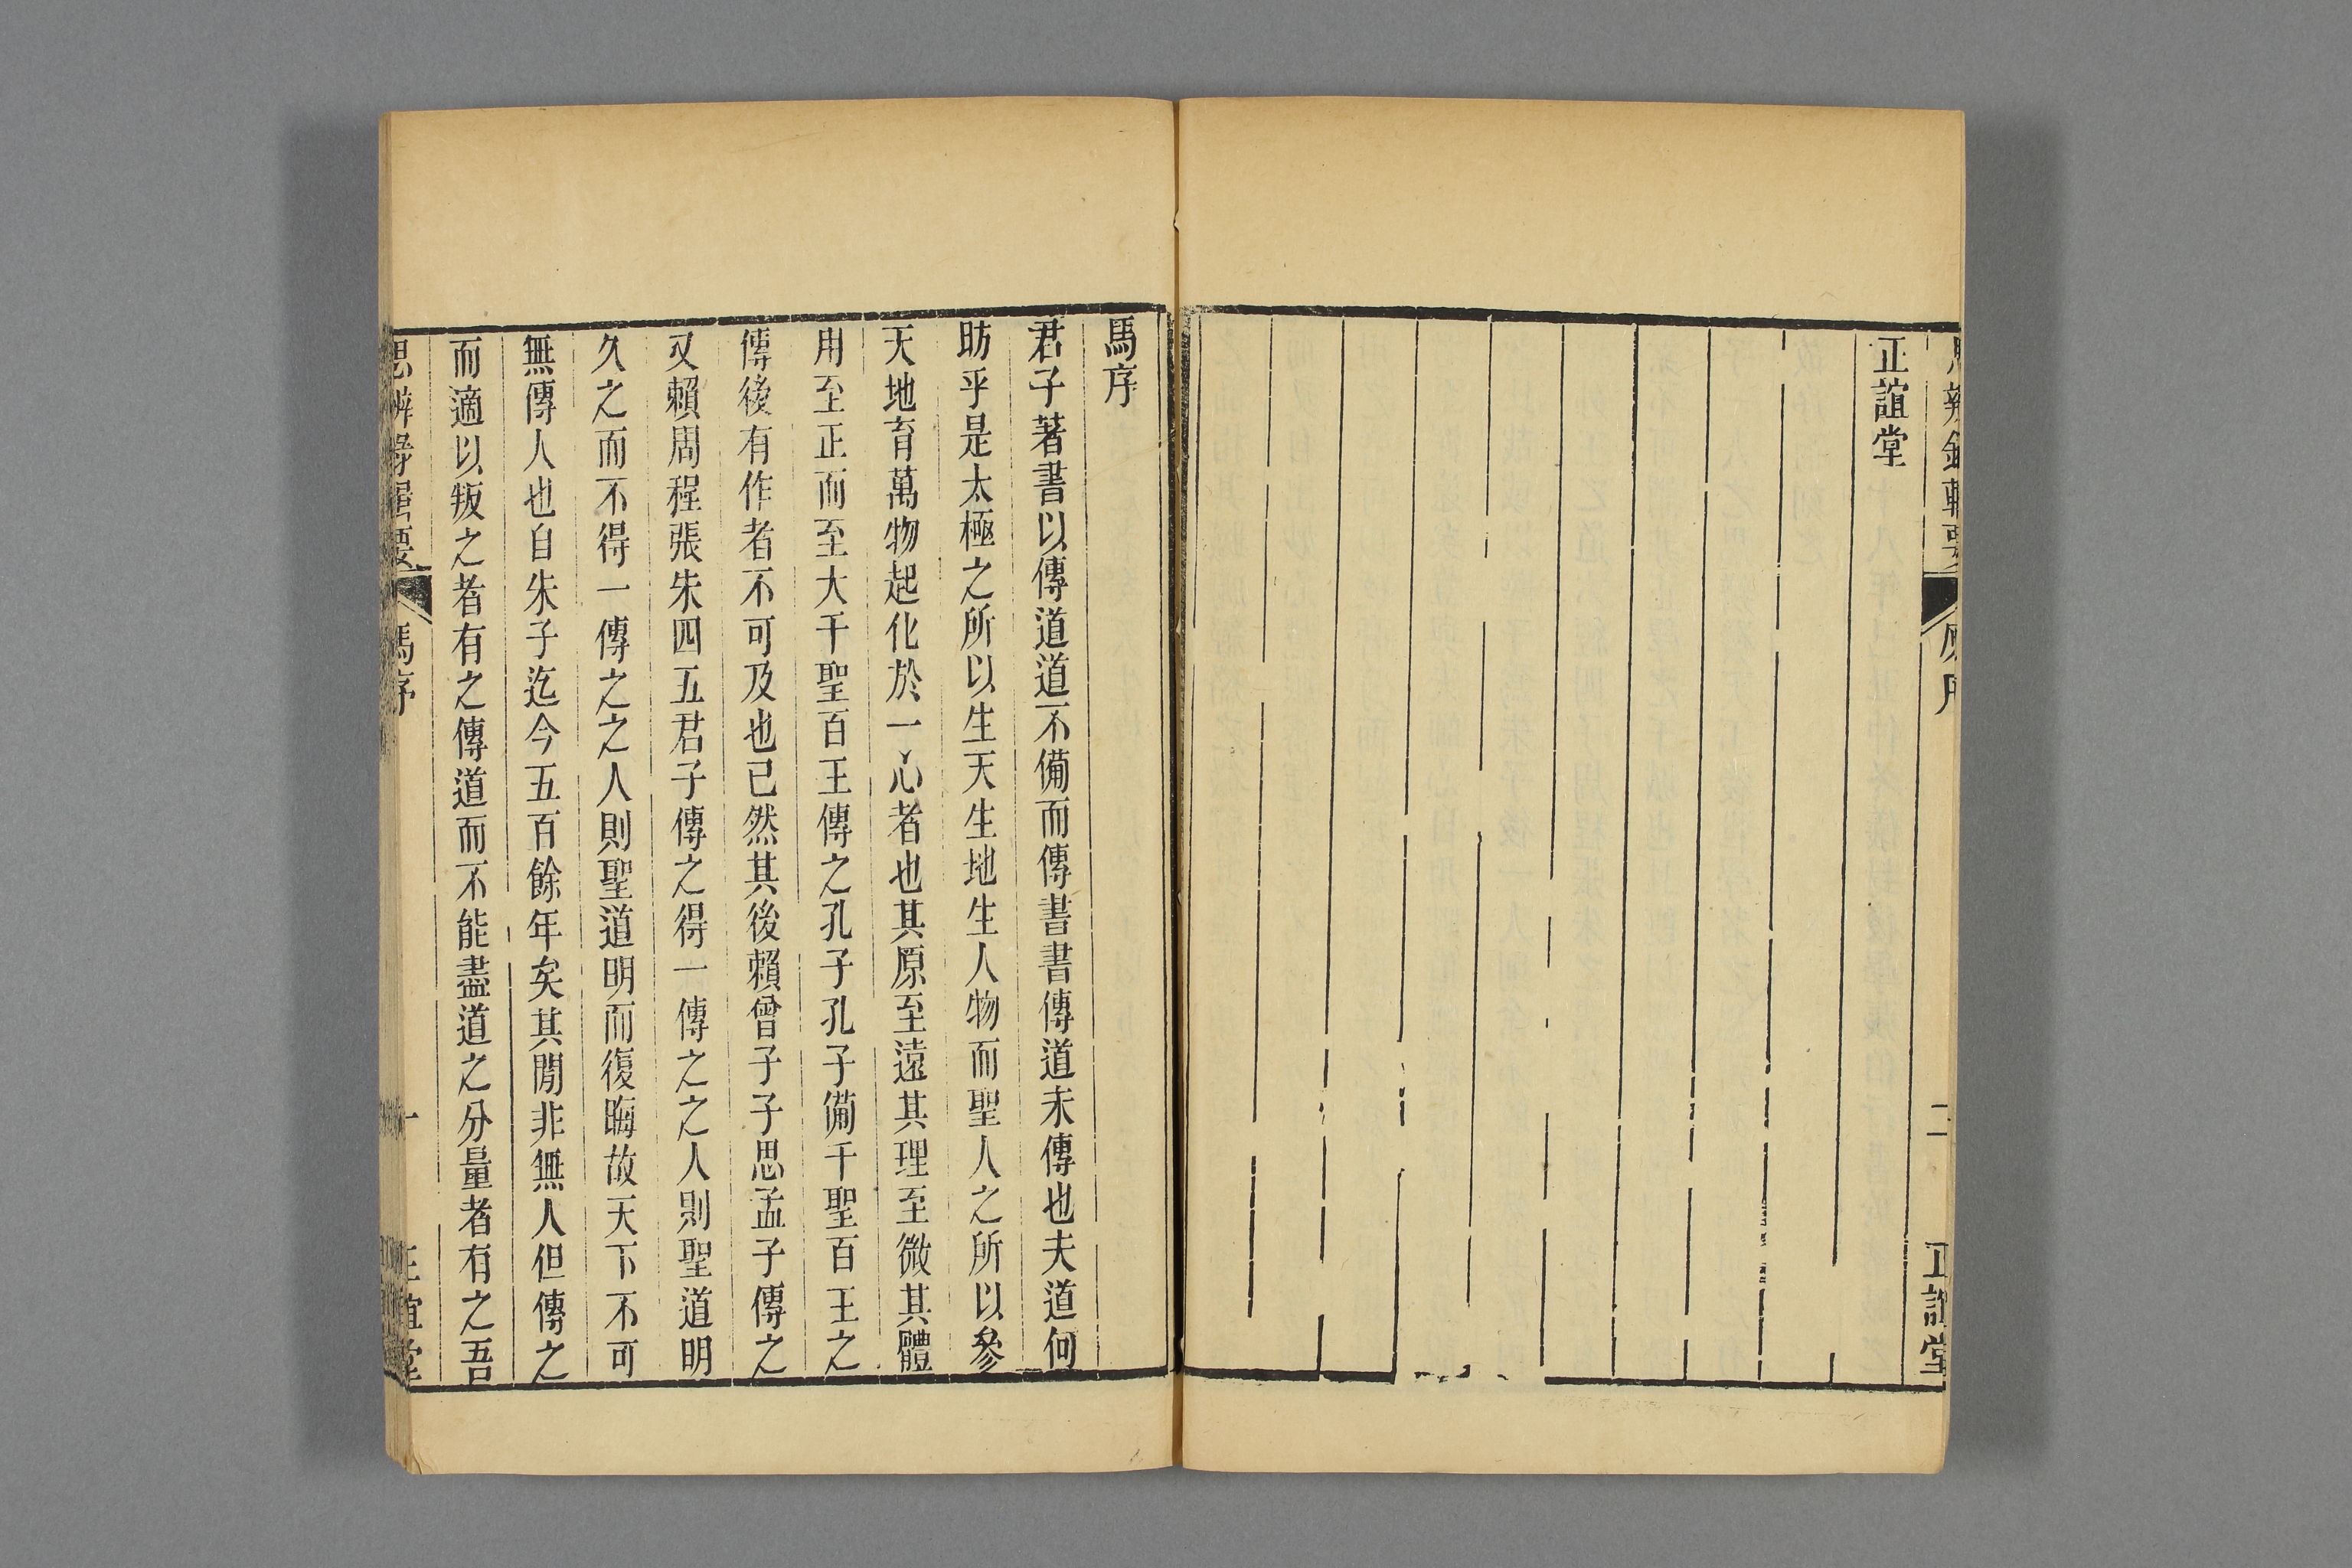 正誼堂
二
正誼堂
馬序
君子著書以傳道道不備而傳書書傳道未傳也夫道何
昉乎是太極之所以生天生地生人物而聖人之所以參
天地育萬物起化於一心者也其原至遠其理至微其體
用至正而至大千聖百王傳之孔子孔子備千聖百王之
傳後有作者不可及也已然其後賴曾子子思孟子傳之
又賴周程張朱四五君子傳之得一傳之之人則聖道明
久之而不得一傳之之人則聖道明而復晦故天下不可
無傳人也自朱子迄今五百餘年矣其閒非無人但傳之
而適以叛之者有之傳道而不能盡道之分量者有之吾
思辨錄輯要
馬序
一
正誼堂